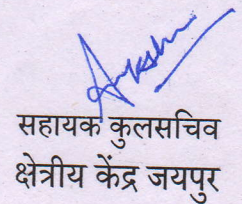 सहायक कुलसचिव
क्षेत्रीय केंद्र जयपुर